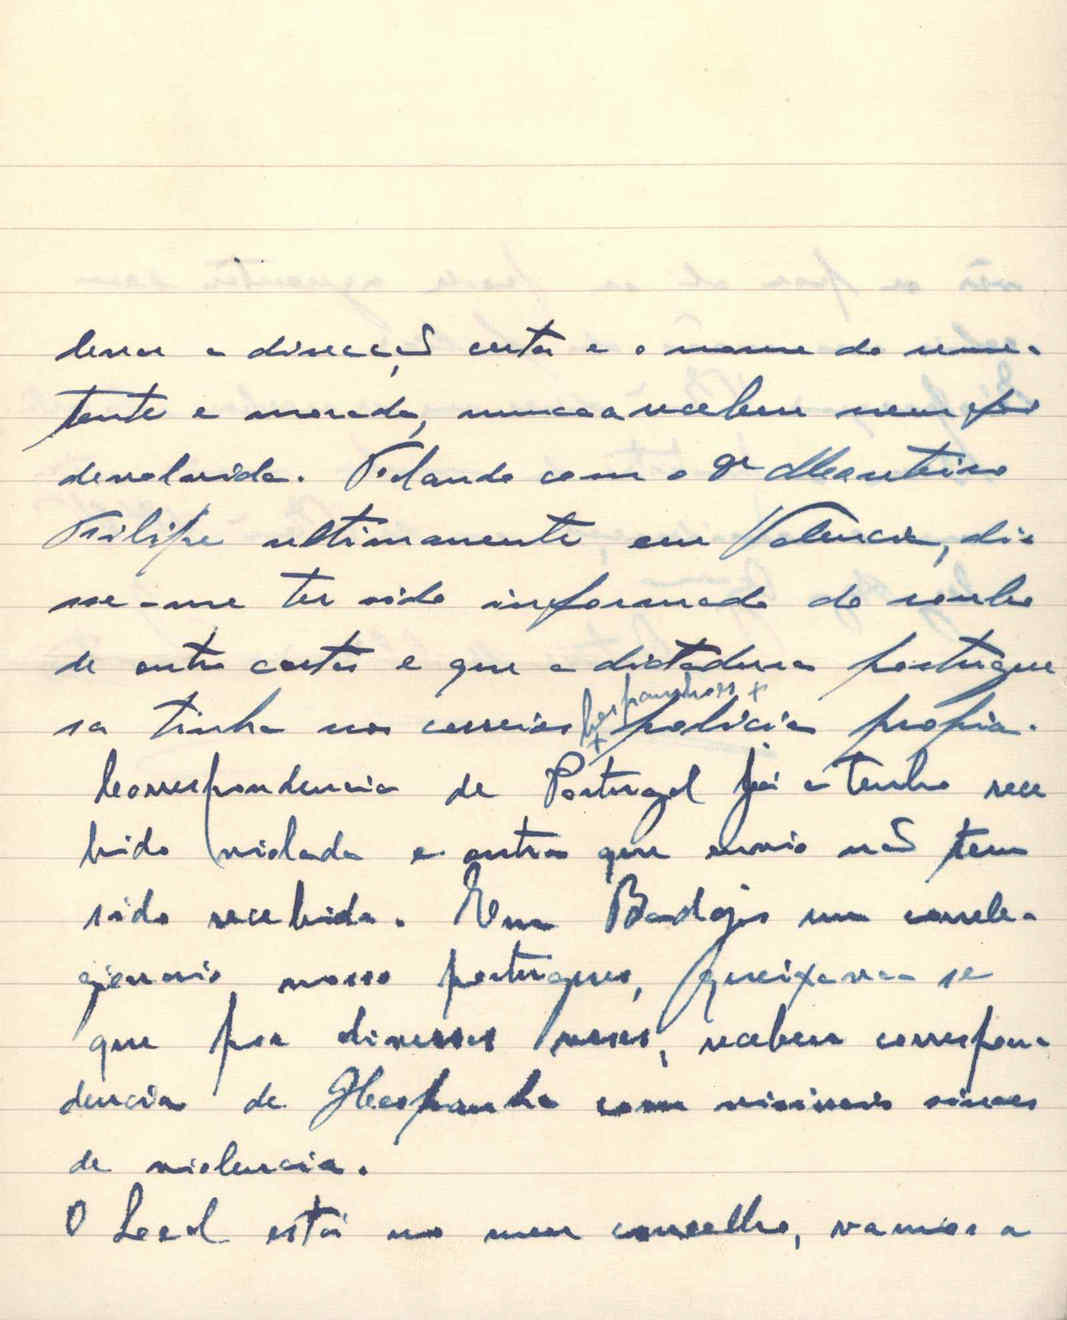 levar a direcção certa e o nome do reme-
tente e morada, nunca a recebeu nem foi
devolvida. Falando com o Dr Monteiro
Filipe ultimamente em Valencia, dis
se-me ter sido informado do roubo
de outra carta e que a dictadura portugue
sa tinha nos correios hespanhoes policia propria.
Correspondencia de Portugal já a tenho rece
bido violada e outra que envio não tem
sido recebida. Em Badajos um correle-
gionario nosso portugues, queixava se
que por diversas vezes, recebeu correspon-
dencia de Hespanha com visiveis sinaes
de violencia.
O Leal está no meu concelho, vamos a